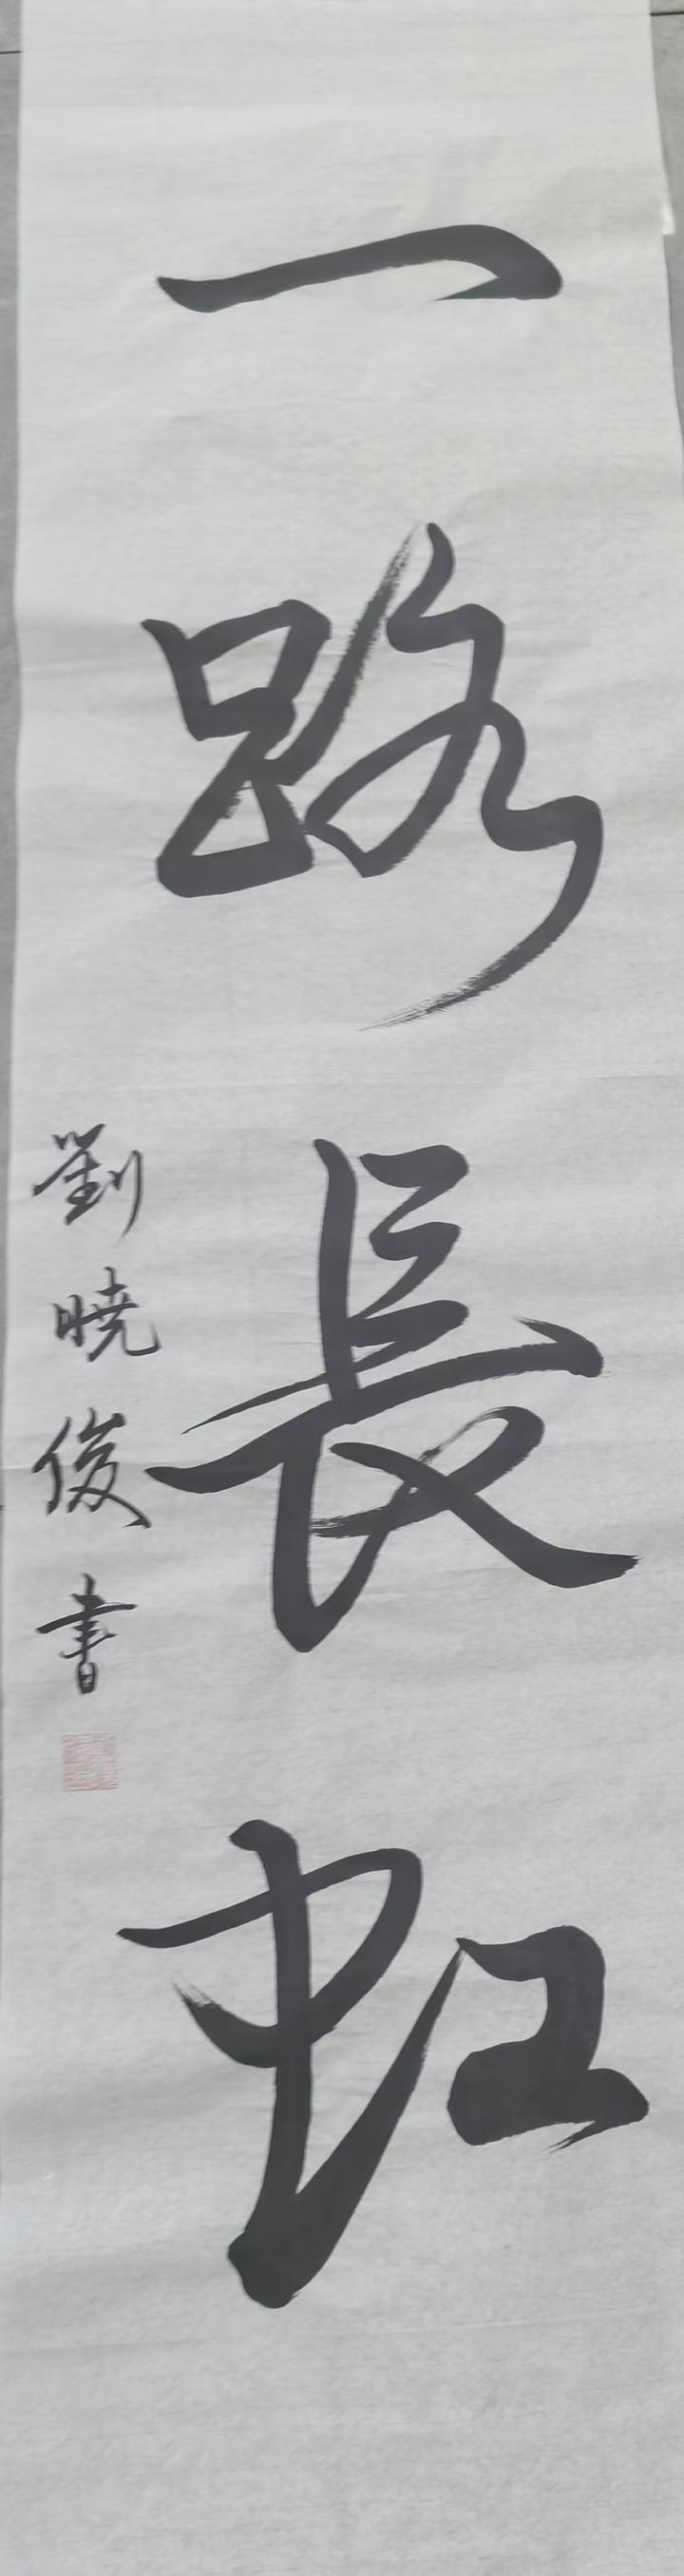 一路長虹
劉曉俊書